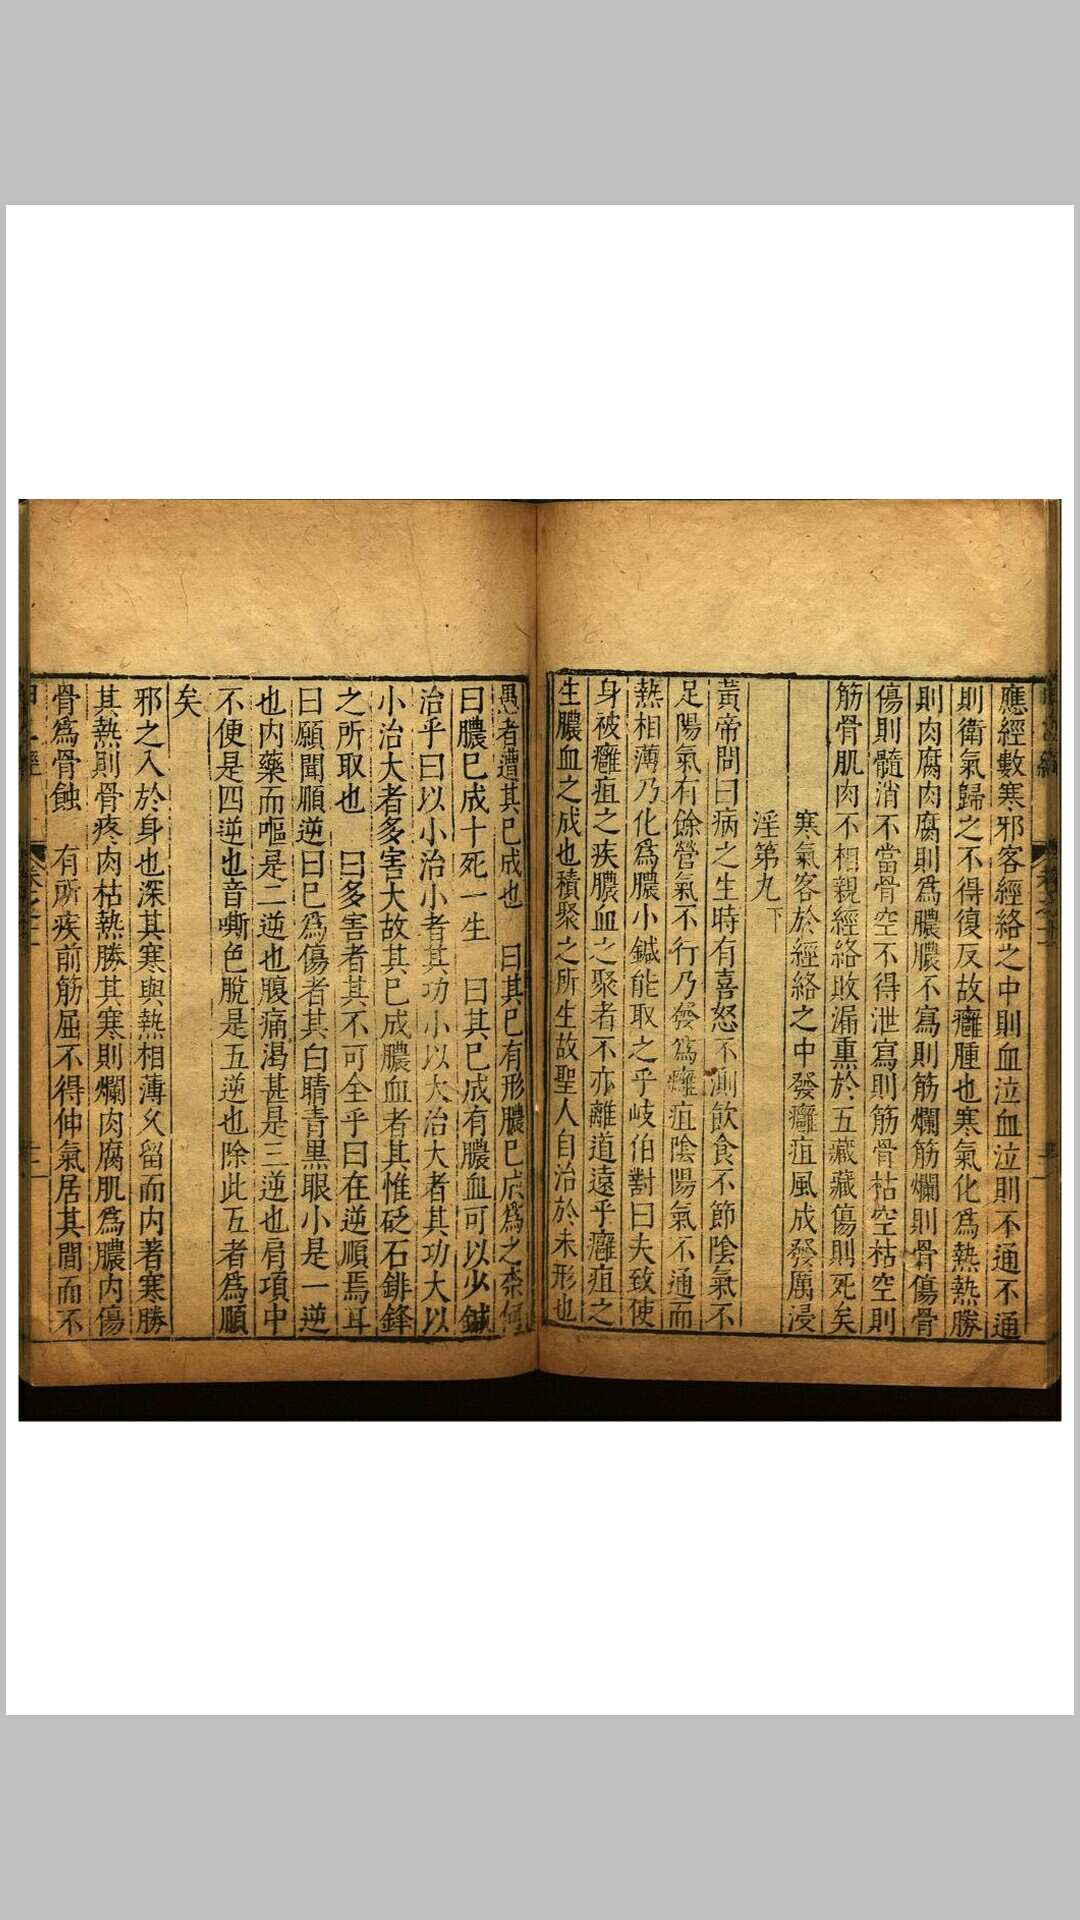 應經數寒邪客經絡之中則血泣血泣則不通不通
則衛氣歸之不得復反故癰腫也寒氣化爲熱熱勝
則肉腐肉腐則爲膿膿不寫則筋爛筋爛則骨傷骨
傷則髓消不當骨空不得泄寫則筋骨枯空枯空則
筋骨肌肉不相親經絡敗漏熏於五藏藏傷則死矣
寒氣客於經絡之中發癰疽風成發厲浸
淫第九下
黃帝問曰病之生時有喜怒不測飲食不節陰氣不
足陽氣有餘營氣不行乃發爲癰疽陰陽氣不通而
熱相薄乃化爲膿小鍼能取之乎岐伯對曰夫致使
身被癰疽之疾膿血之聚者不亦離道遠乎癰疽之
生膿血之成也積聚之所生故聖人自治於未形也
愚者遭其已成也 曰其已有形膿已成爲之柰何
曰膿已成十死一生 曰其已成有膿血可以少鍼
治乎曰以小治小者其功小以大治大者其功大以
小治大者多害大故其已成膿血者其惟砭石鈹鋒
之所取也 曰多害者其不可全乎曰在逆順焉耳
曰願聞順逆曰已爲傷者其白睛青黑眼小是一逆
也内藥而嘔是二逆也腹痛渴甚是三逆也肩項中
不便是四逆也音嘶色脫是五逆也除此五者爲順
矣
邪之入於身也深其寒與熱相薄久留而内著寒勝
其熱則骨疼肉枯熱勝其寒則爛肉腐肌爲膿内傷
骨爲骨蝕 有所疾前筋屈不得伸氣居其間而不